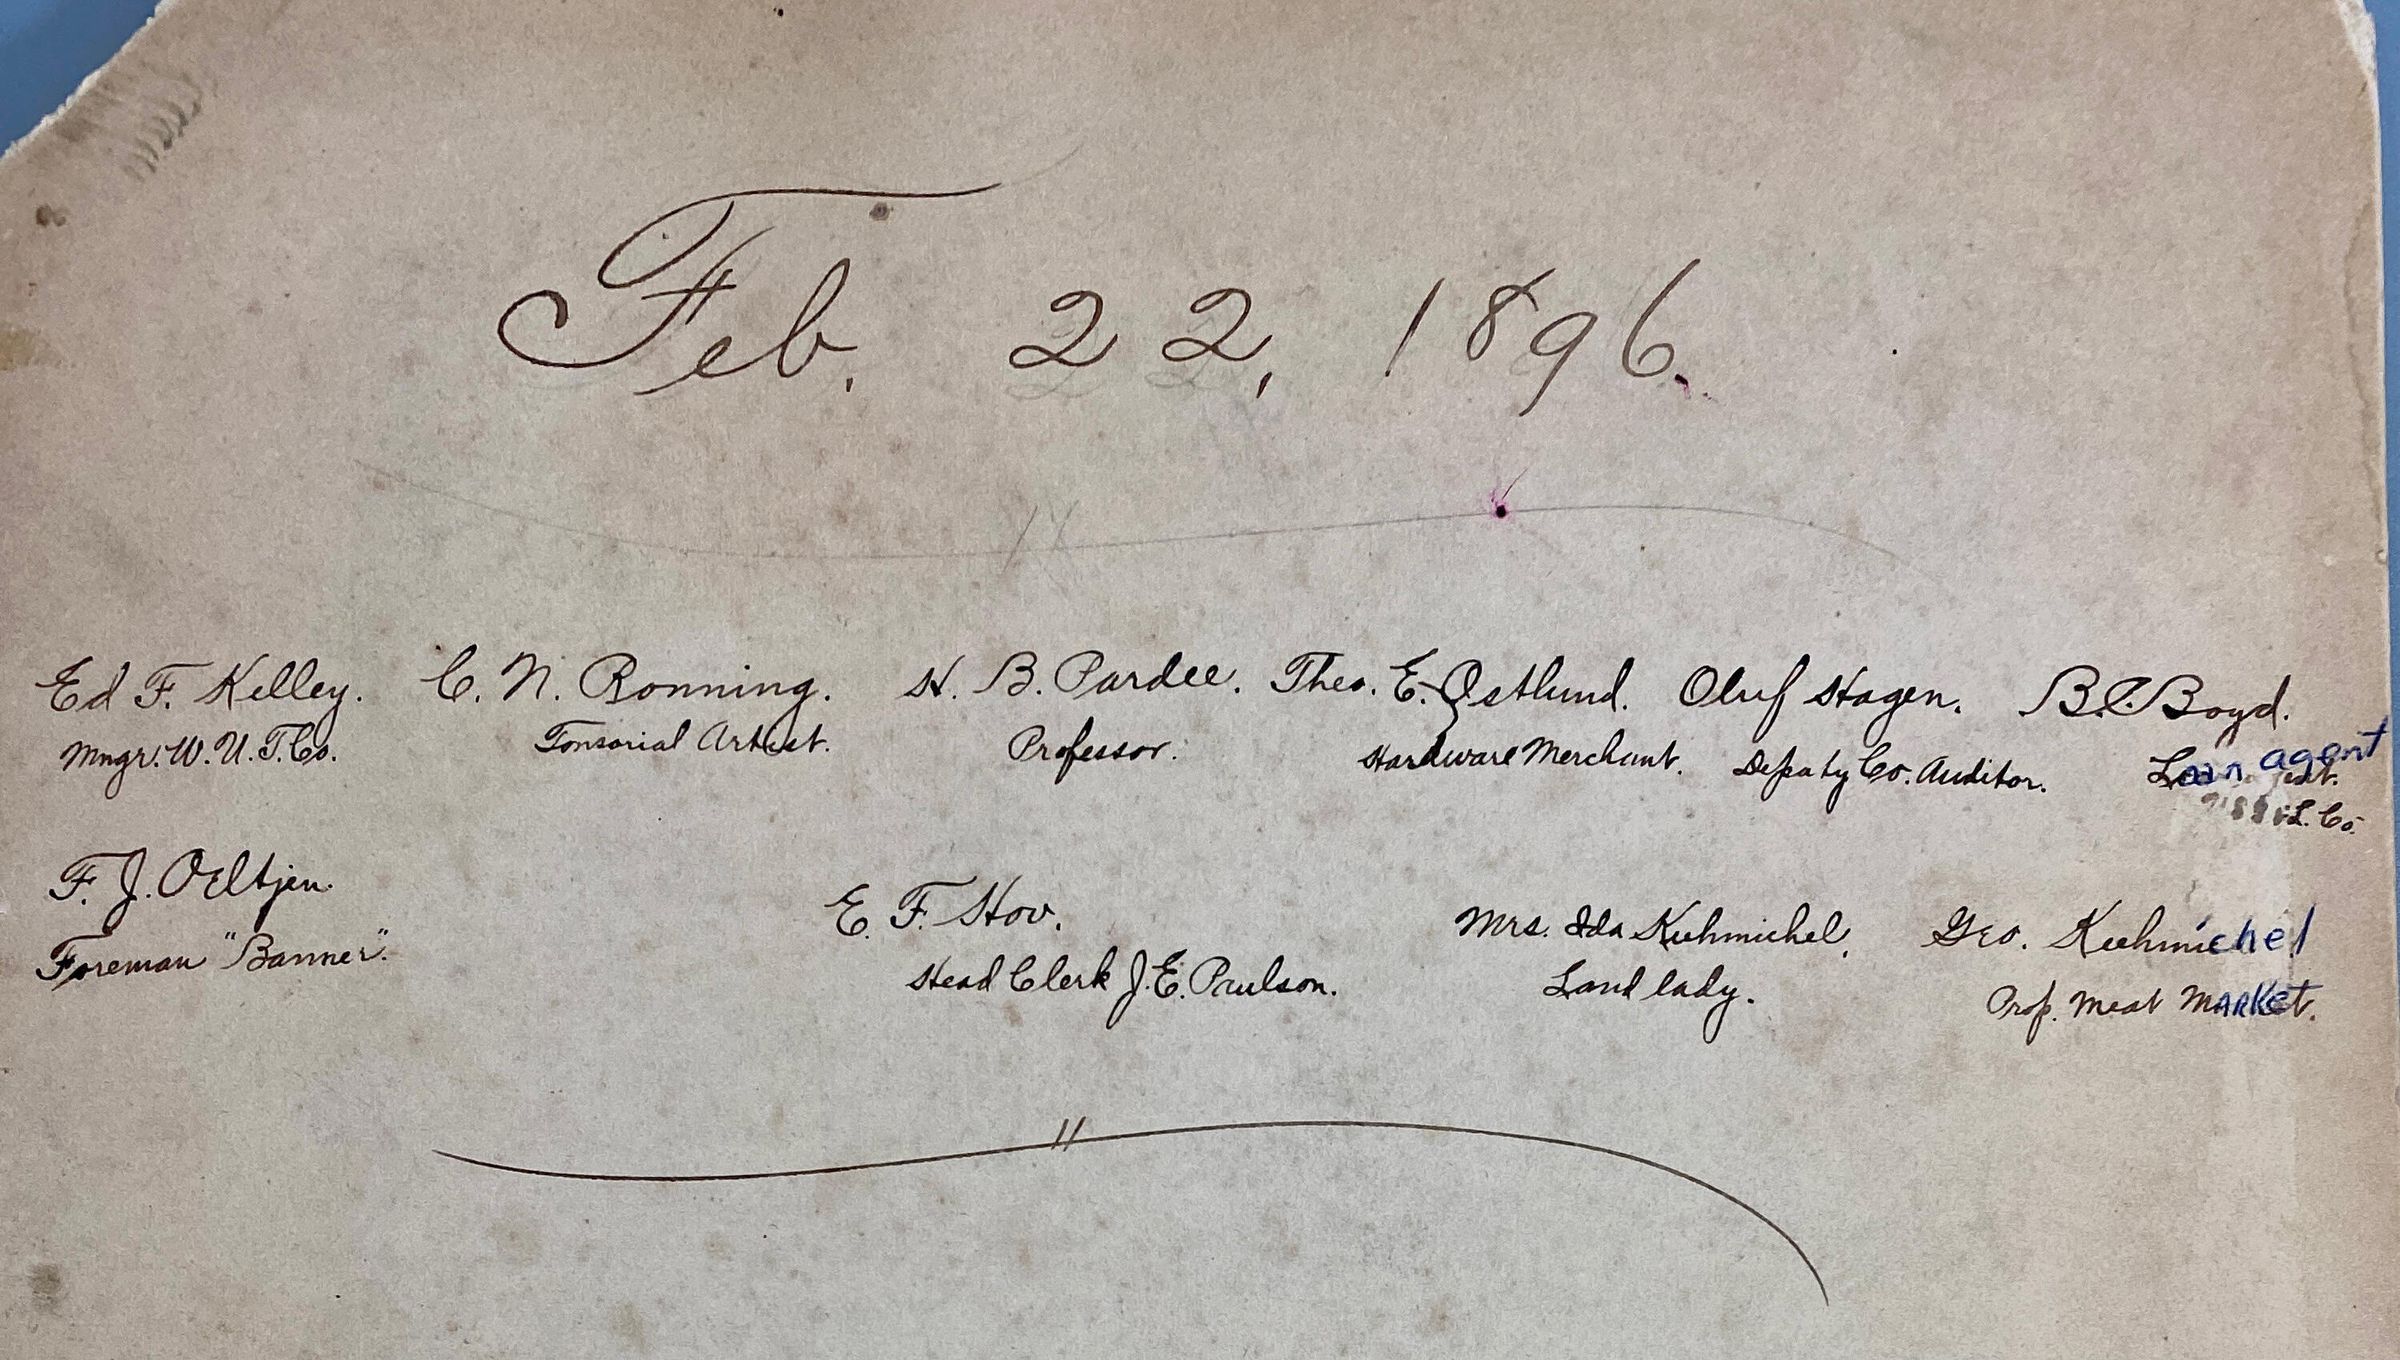 Feb. 22, 1896.
Ed F. Kelley. C. N. Ronning. H. B. Pardee. Theo. E. Ostlund. Oluf Hagen. B. C. Boyd.
Mngr. W. U. T. Co. Tonsorial Artist. Professor. Hardware Merchant. Deputy Co. Auditor. Loan agent
L. Co.
F. J. Oeltjen. E. F. Hov. Mrs. Ida Kuhmichel. Geo. Kuhmichel
Foreman "Banner". Head Clerk J. E. Paulson. Land lady. Prop. Meat Market.